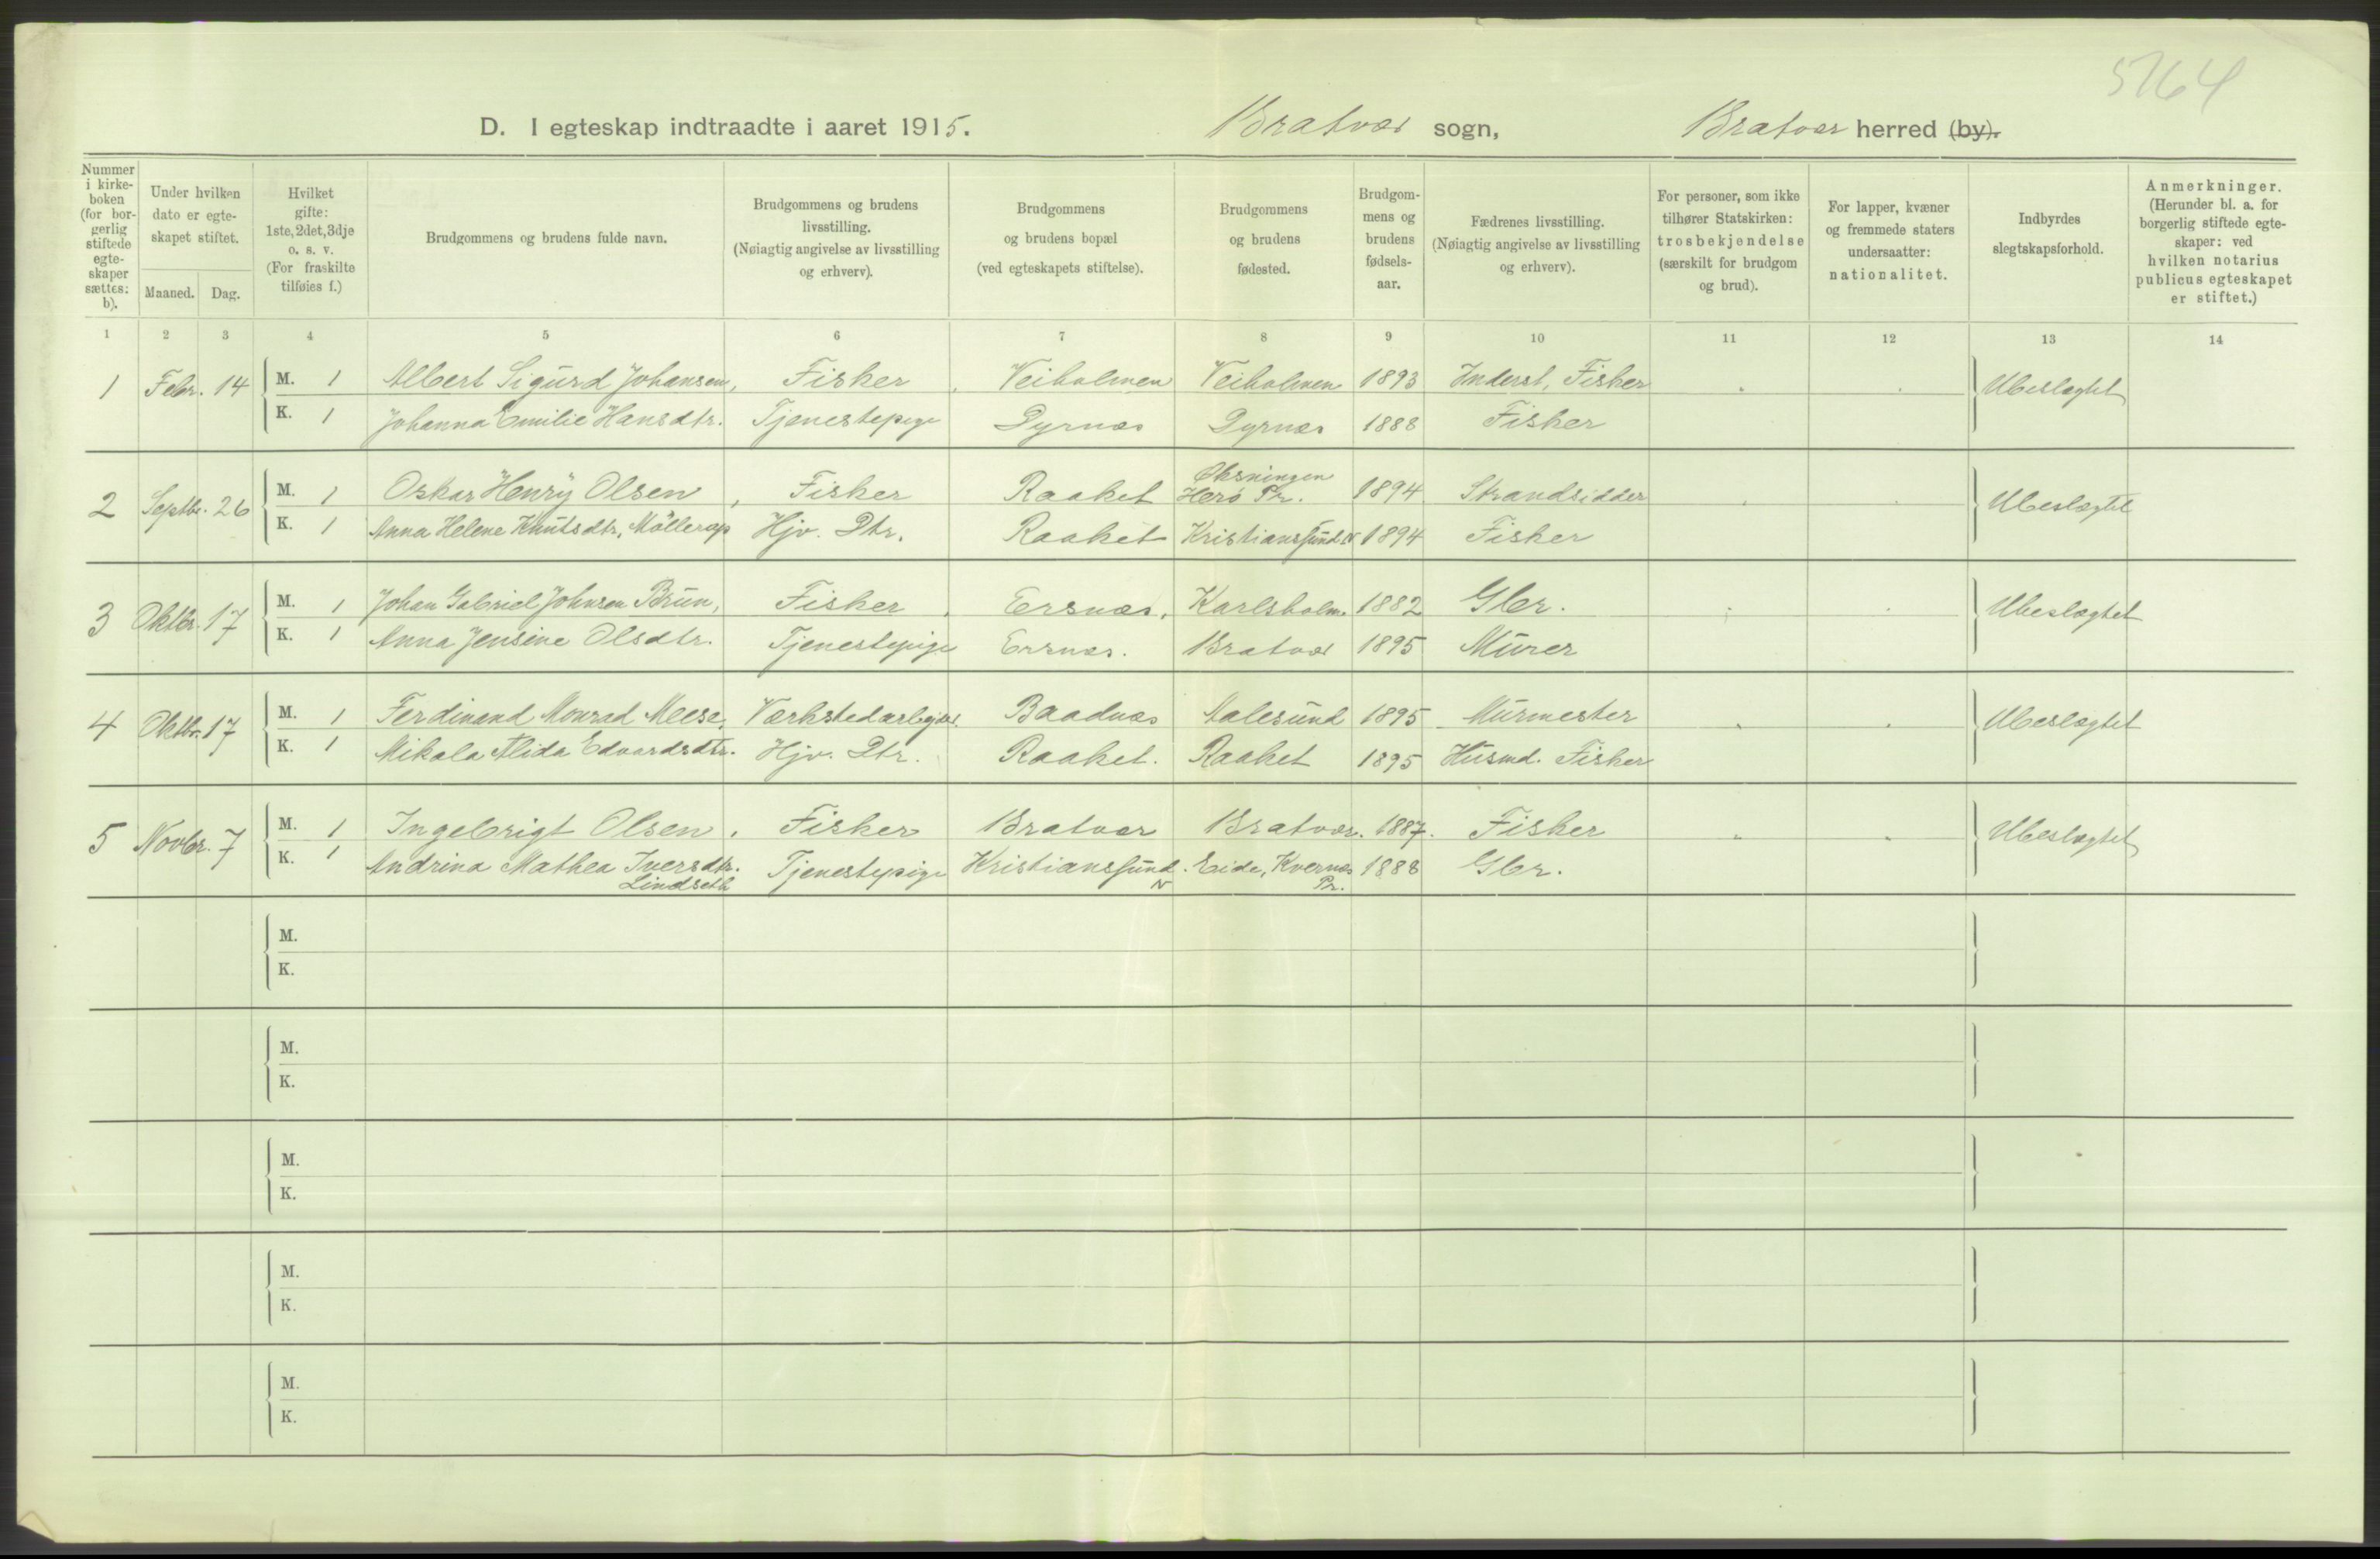 5764
D. I egteskap indtraadte i aaret 1915. Bratvær sogn, Bratvær herred (by).
Nummer i kirke-boken (for bor-gerlig stiftede egte-skaper sættes: b).
Under hvilken dato er egte-skapet stiftet.
Maaned. Dag.
Hvilket gifte: 1ste, 2det, 3dje o. s. v. (For fraskilte tilføies f.)
Brudgommens og brudens fulde navn.
Brudgommens og brudens livsstilling. (Nøiagtig angivelse av livsstilling og erhverv).
Brudgommens og brudens bopæl (ved egteskapets stiftelse).
Brudgommens og brudens fødested.
Brudgom-mens og brudens fødsels-aar.
Fædrenes livsstilling. (Nøiagtig angivelse av livsstilling og erhverv).
For personer, som ikke tilhører Statskirken: trosbekjendelse (særskilt for brudgom og brud).
For lapper, kvæner og fremmede staters undersaatter: nationalitet.
Indbyrdes slegtskapsforhold.
Anmerkninger. (Herunder bl. a. for borgerlig stiftede egte-skaper: ved hvilken notarius publicus egteskapet er stiftet.)
1 2 3 4 5 6 7 8 9 10 11 12 13 14
1 Febr. 14 M. 1 Albert Sigurd Johansen, Fisker Veiholmen Veiholmen 1893 Inderst, Fisher Ubeslægtet
K. 1 Johanna Emilie Hansdtr. Tjenestepige Dyrnæs Dyrnæs 1888 Fisker
2 Septbr. 26 M. 1 Oskar Henry Olsen, Fisker Raaket Øksningen Herø Pr. 1894 Strandsidder Ubeslægtet
K. 1 Anna Helene Knutsdtr. Möllerop Hjv. Dtr. Raaket Kristianssund N 1894 Fisker
3 Oktbr. 17 M. 1 Johan Gabriel Johnsen Brun, Fisker Ersnæs, Karlsholm. 1882 Gbr. Ubeslægtet
K. 1 Anna Jensine Olsdtr. Tjenestepige Ersnæs. Bratvær 1895 Murer
4 Oktbr. 17 M. 1 Ferdinand Monrad Meese, Værkstedarbeider Baadnæs Aalesund 1895 Murmester Ubeslægtet
K. 1 Mikala Alida Edvardsdtr. Hjv. Dtr. Raaket. Raaket 1895 Husmd. Fisker
5 Novbr. 7 M. 1 Ingebrigt Olsen, Fisker Bratvær Bratvær. 1887. Fisker Ubeslægtet
K. 1 Andrina Mathea Iversdtr. Lindseth Tjenestepige Kristianssund N. Eide, Kvernæs Pr. 1888 Gbr.
M.
K.
M.
K.
M.
K.
M.
K.
M.
K.